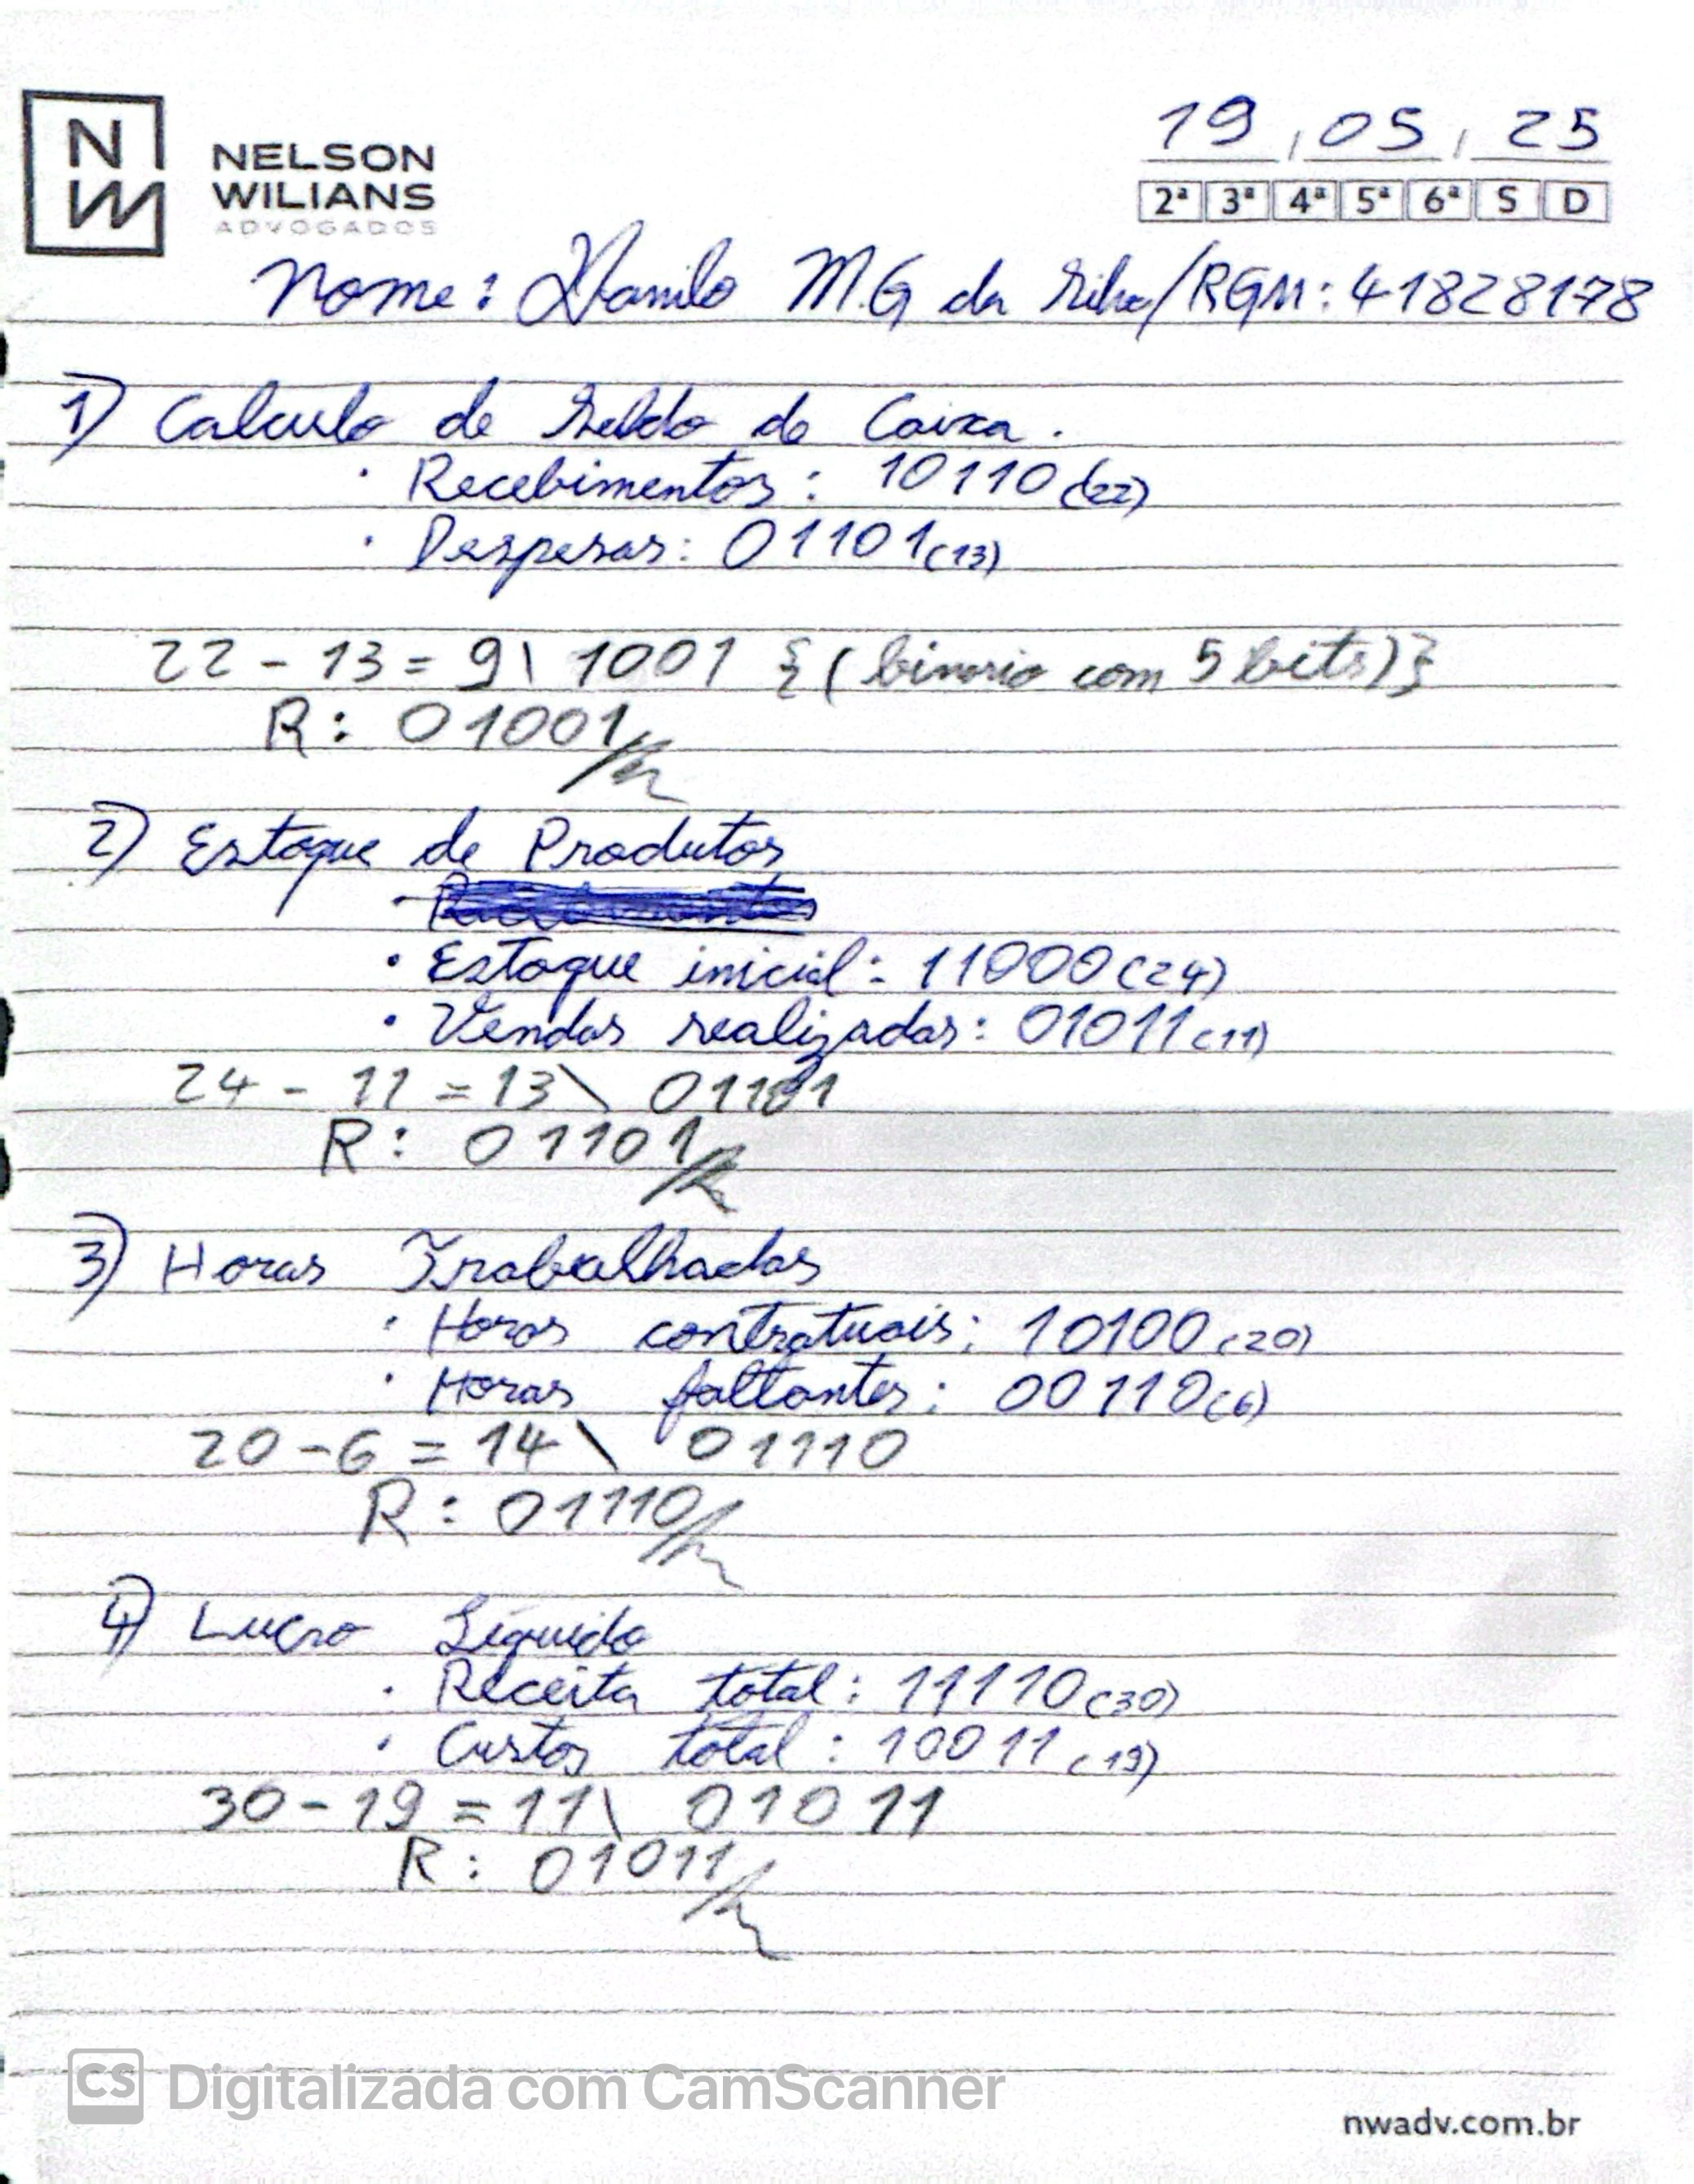 NW
NELSON
WILIANS
ADVOGADOS
19, 05, 25
2ª 3ª 4ª 5ª 6ª S D
Nome: Danilo M.G da Silva/RGM: 41828178
1) Calculo de Saldo de Caixa.
· Recebimentos: 10110 (22)
· Despesas: 01101 (13)
22 - 13 = 9\ 1001 {(binario com 5 bits)}
R: 01001//
2) Estoque de Produtos
· Estoque inicial: 11000 (24)
· Vendas realizadas: 01011 (11)
24 - 11 = 13\ 01101
R: 01101//
3) Horas Trabalhadas
· Horas contratuais: 10100 (20)
· Horas faltantes: 00110 (6)
20 - 6 = 14\ 01110
R: 01110//
4) Lucro Líquido
· Receita total: 11110 (30)
· Custos total: 10011 (19)
30 - 19 = 11\ 01011
R: 01011//
CS Digitalizada com CamScanner
nwadv.com.br